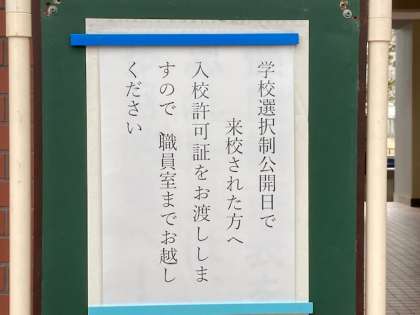 学校選択制公開日で
来校された方へ
入校許可証をお渡ししま
すので　職員室までお越し
ください